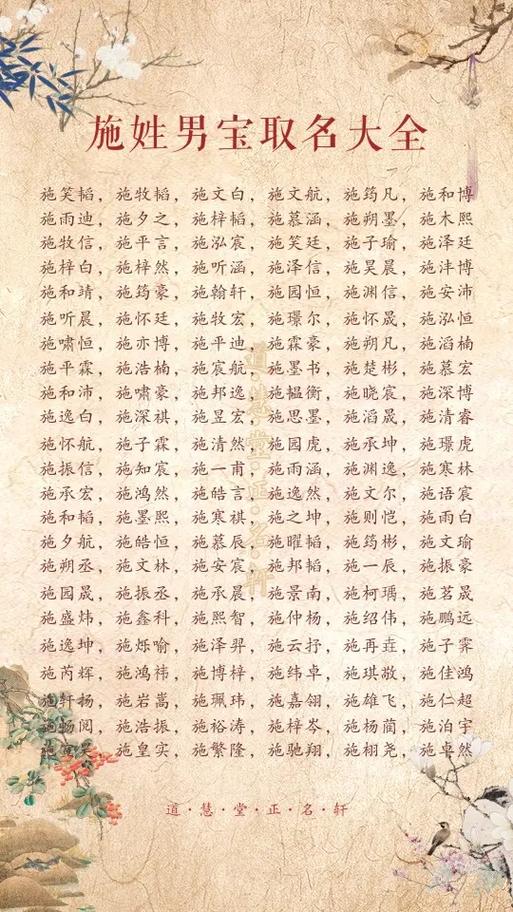 施姓男宝取名大全
施笑韬，施牧韬，施文白，施文航，施筠凡，施和博
施雨迪，施夕之，施梓韬，施慕涵，施朔墨，施木熙
施牧信，施平言，施泓宸，施笑廷，施子瑜，施泽廷
施梓白，施梓然，施听涵，施泽信，施昊晨，施沣博
施和靖，施筠豪，施翰轩，施园恒，施渊信，施安沛
施听晨，施怀廷，施牧宏，施璟尔，施怀晟，施泓恒
施啸恒，施亦博，施平迪，施霖豪，施朔凡，施滔楠
施平霖，施浩楠，施宸航，施墨书，施楚彬，施慕宏
施和沛，施啸豪，施邦逸，施韫衡，施晓宸，施深博
施逸白，施深祺，施昱宏，施思墨，施滔晟，施清睿
施怀航，施子霖，施清然，施园虎，施承坤，施璟虎
施振信，施知宸，施一甫，施雨涵，施渊逸，施寒林
施承宏，施鸿然，施皓言，施逸然，施文尔，施语宸
施和韬，施墨熙，施寒祺，施之坤，施则恺，施雨白
施夕航，施皓恒，施慕辰，施曜韬，施筠彬，施文瑜
施朔丞，施文林，施安宸，施邦韬，施一辰，施振豪
施园晟，施振丞，施承晨，施景南，施柯瑀，施茗晟
施盛炜，施鑫科，施熙智，施仲杨，施绍伟，施鹏远
施逸坤，施烁喻，施泽羿，施云抒，施再垚，施子霁
施芮辉，施鸿祎，施博梓，施纬卓，施琪敬，施佳鸿
施轩扬，施岩嵩，施珮玮，施嘉翎，施雄飞，施仁超
施畅阅，施浩振，施裕涛，施梓岑，施杨蔺，施泊宇
施皇实，施繁隆，施驰翔，施栩尧，施卓然
道·慧·堂·正·名·轩
道慧堂·正·名轩